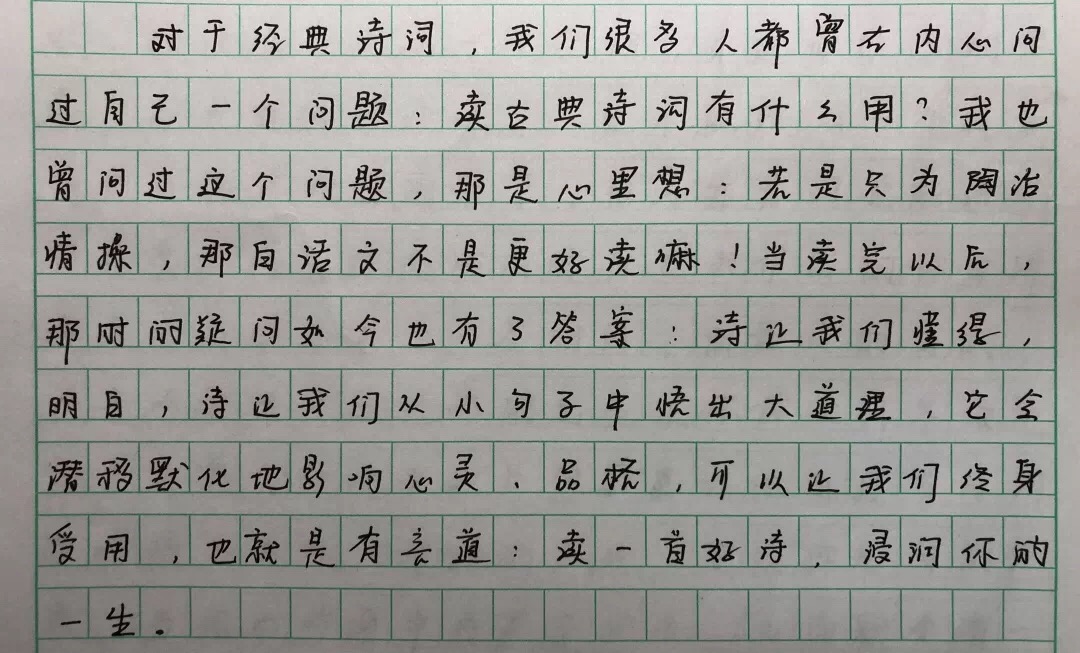 对于经典诗词，我们很多人都曾在内心问
过自己一个问题：读古典诗词有什么用？我也
曾问过这个问题，那是心里想：若是只为陶冶
情操，那白话文不是更好读嘛！当读完以后，
那时的疑问如今也有了答案：诗让我们懂得，
明白，诗让我们从小句子中悟出大道理，它会
潜移默化地影响心灵、品格，可以让我们终身
受用，也就是有言道：读一首好诗，浸润你的
一生。